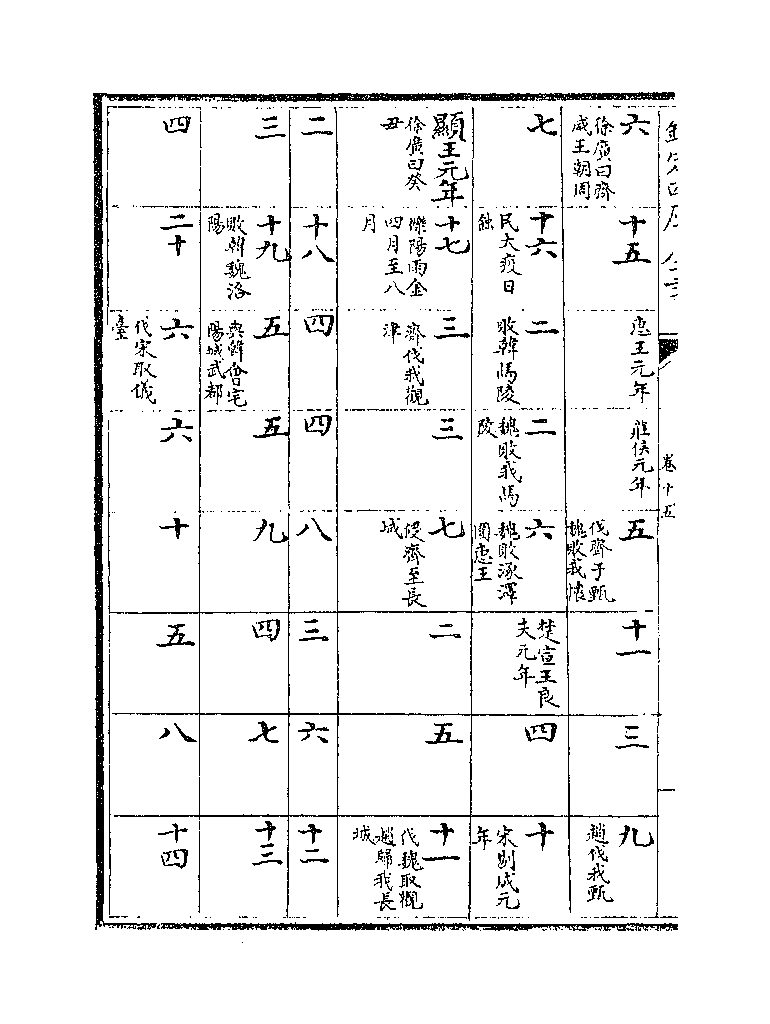 欽定四庫全書
卷十五
六
徐廣曰齊
威王朝周
十五
惠王元年
莊侯元年
五
伐齊于甄
魏敗我懷
十一
三
九
趙伐我甄
七
十六
民大疫日
蝕
二
敗韓馬陵
二
魏敗我馬
陵
六
魏敗涿澤
圍惠王
楚宣王良
夫元年
四
十
宋剔成元
年
顯王元年
徐廣曰癸
丑
十七
櫟陽雨金
四月至八
月
三
齊伐我觀
津
三
七
侵齊至長
城
二
五
十一
伐魏取觀
趙歸我長
城
二
十八
四
四
八
三
六
十二
三
十九
敗韓魏洛
陽
五
與韓會宅
陽城武都
五
九
四
七
十三
四
二十
六
伐宋取儀
臺
六
十
五
八
十四